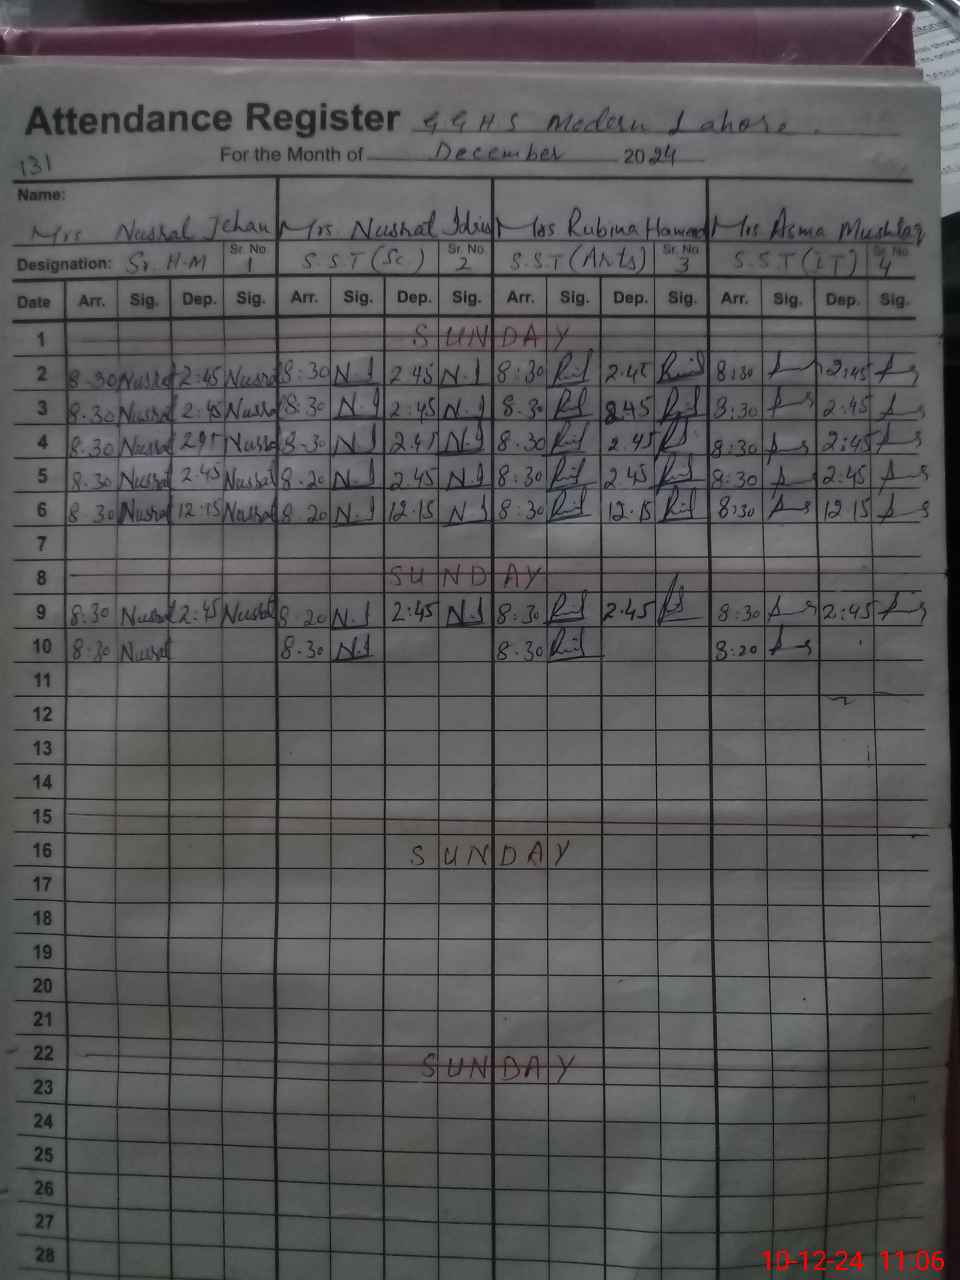 Attendance Register GGHS Modern Lahore.
131 For the Month of December 2024
Name:
Mrs Nusrat Jehan Mrs Nusrat Idris Mrs Rubina Hameed Mrs Asma Mushtaq
Designation: Sr. H.M Sr. No 1 S.S.T (Sc.) Sr. No 2 S.S.T (Arts) Sr. No 3 S.S.T (IT) Sr. No 4
Date Arr. Sig. Dep. Sig. Arr. Sig. Dep. Sig. Arr. Sig. Dep. Sig. Arr. Sig. Dep. Sig.
1 SUNDAY
2 8.30 Nusrat 2:45 Nusrat 8:30 N.I 2.45 N.I 8:30 2.45 8:30 2:45
3 8.30 Nusrat 2:45 Nusrat 8.30 N.I 2:45 N.I 8.30 8:30 2:45
4 8.30 Nusrat Nusrat 8.30 N.I 2.45 N.I 8.30 2.45 8:30 2:45
5 8.30 Nusrat 2.45 Nusrat 8.20 N.I 2.45 N.I 8:30 2.45 8:30 2:45
6 8.30 Nusrat 12.15 Nusrat 8.20 N.I 12.15 N.I 8:30 12.15 8:30 12.15
7
8 SUNDAY
9 8:30 Nusrat 2:45 Nusrat 8.20 N.I 2:45 N.I 8:30 2.45 8:30 2:45
10 8:30 Nusrat 8.30 N.I 8.30 8:20
11
12
13
14
15
16 SUNDAY
17
18
19
20
21
22 SUNDAY
23
24
25
26
27
28
10-12-24 11:06